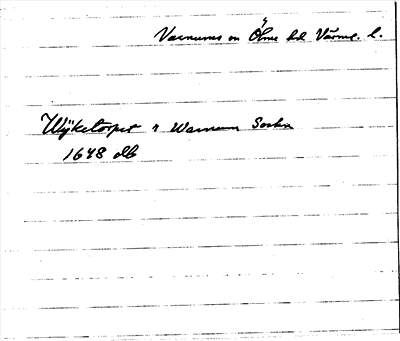 Varnums sn Ölme hd Värml. l.
Wÿketorpet i Warnum Sochn
1648 db